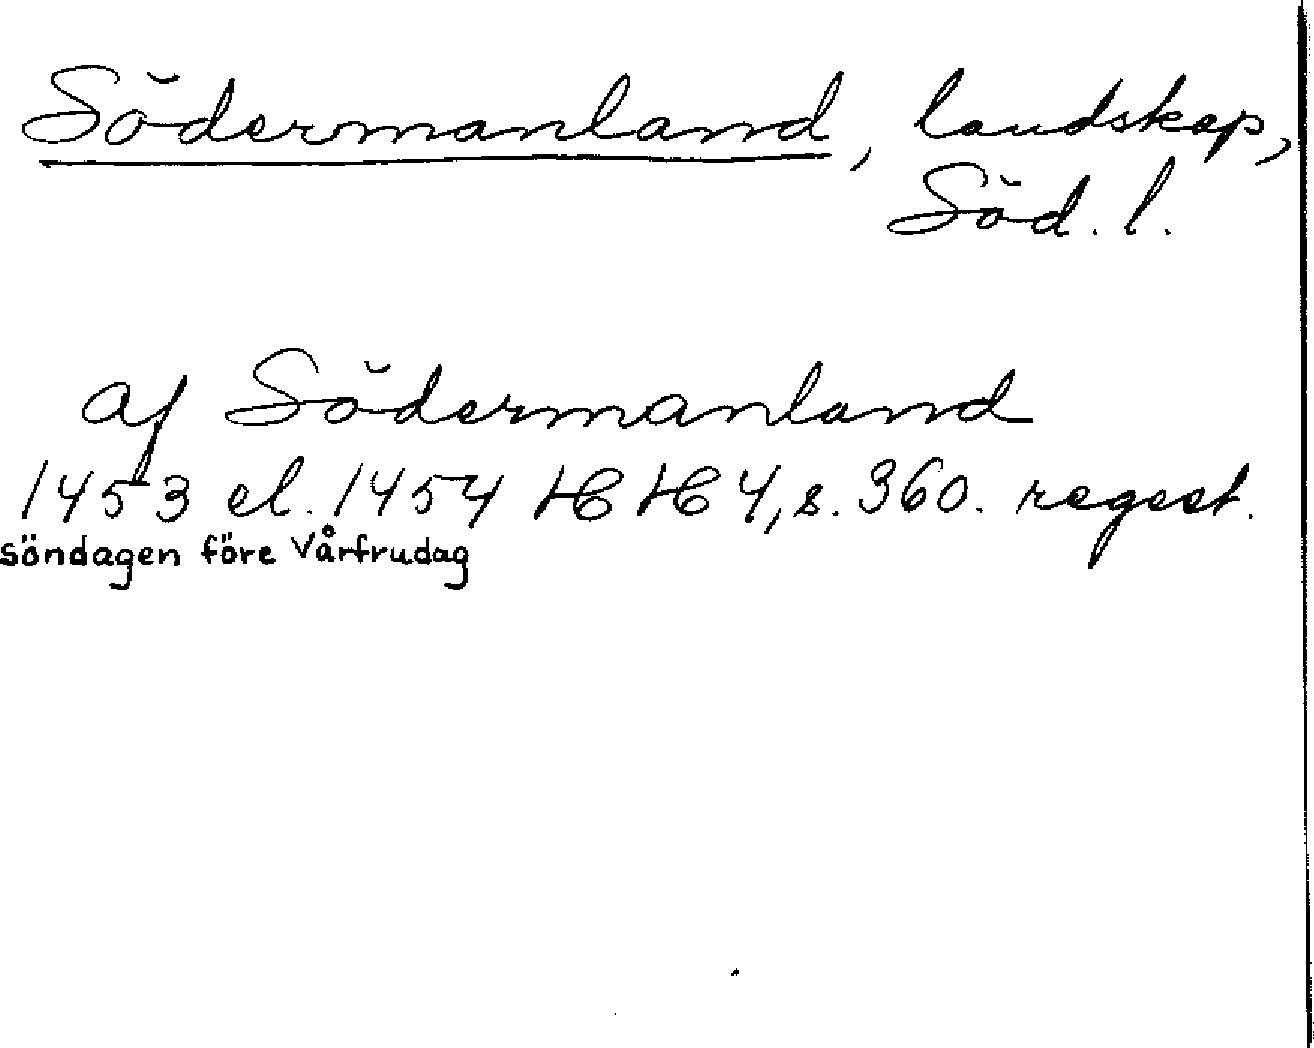 Södermanland, landskap,
Söd. l.
af Södermanland
1453 el. 1454 HH 4, s. 360. regest.
söndagen före Vårfrudag